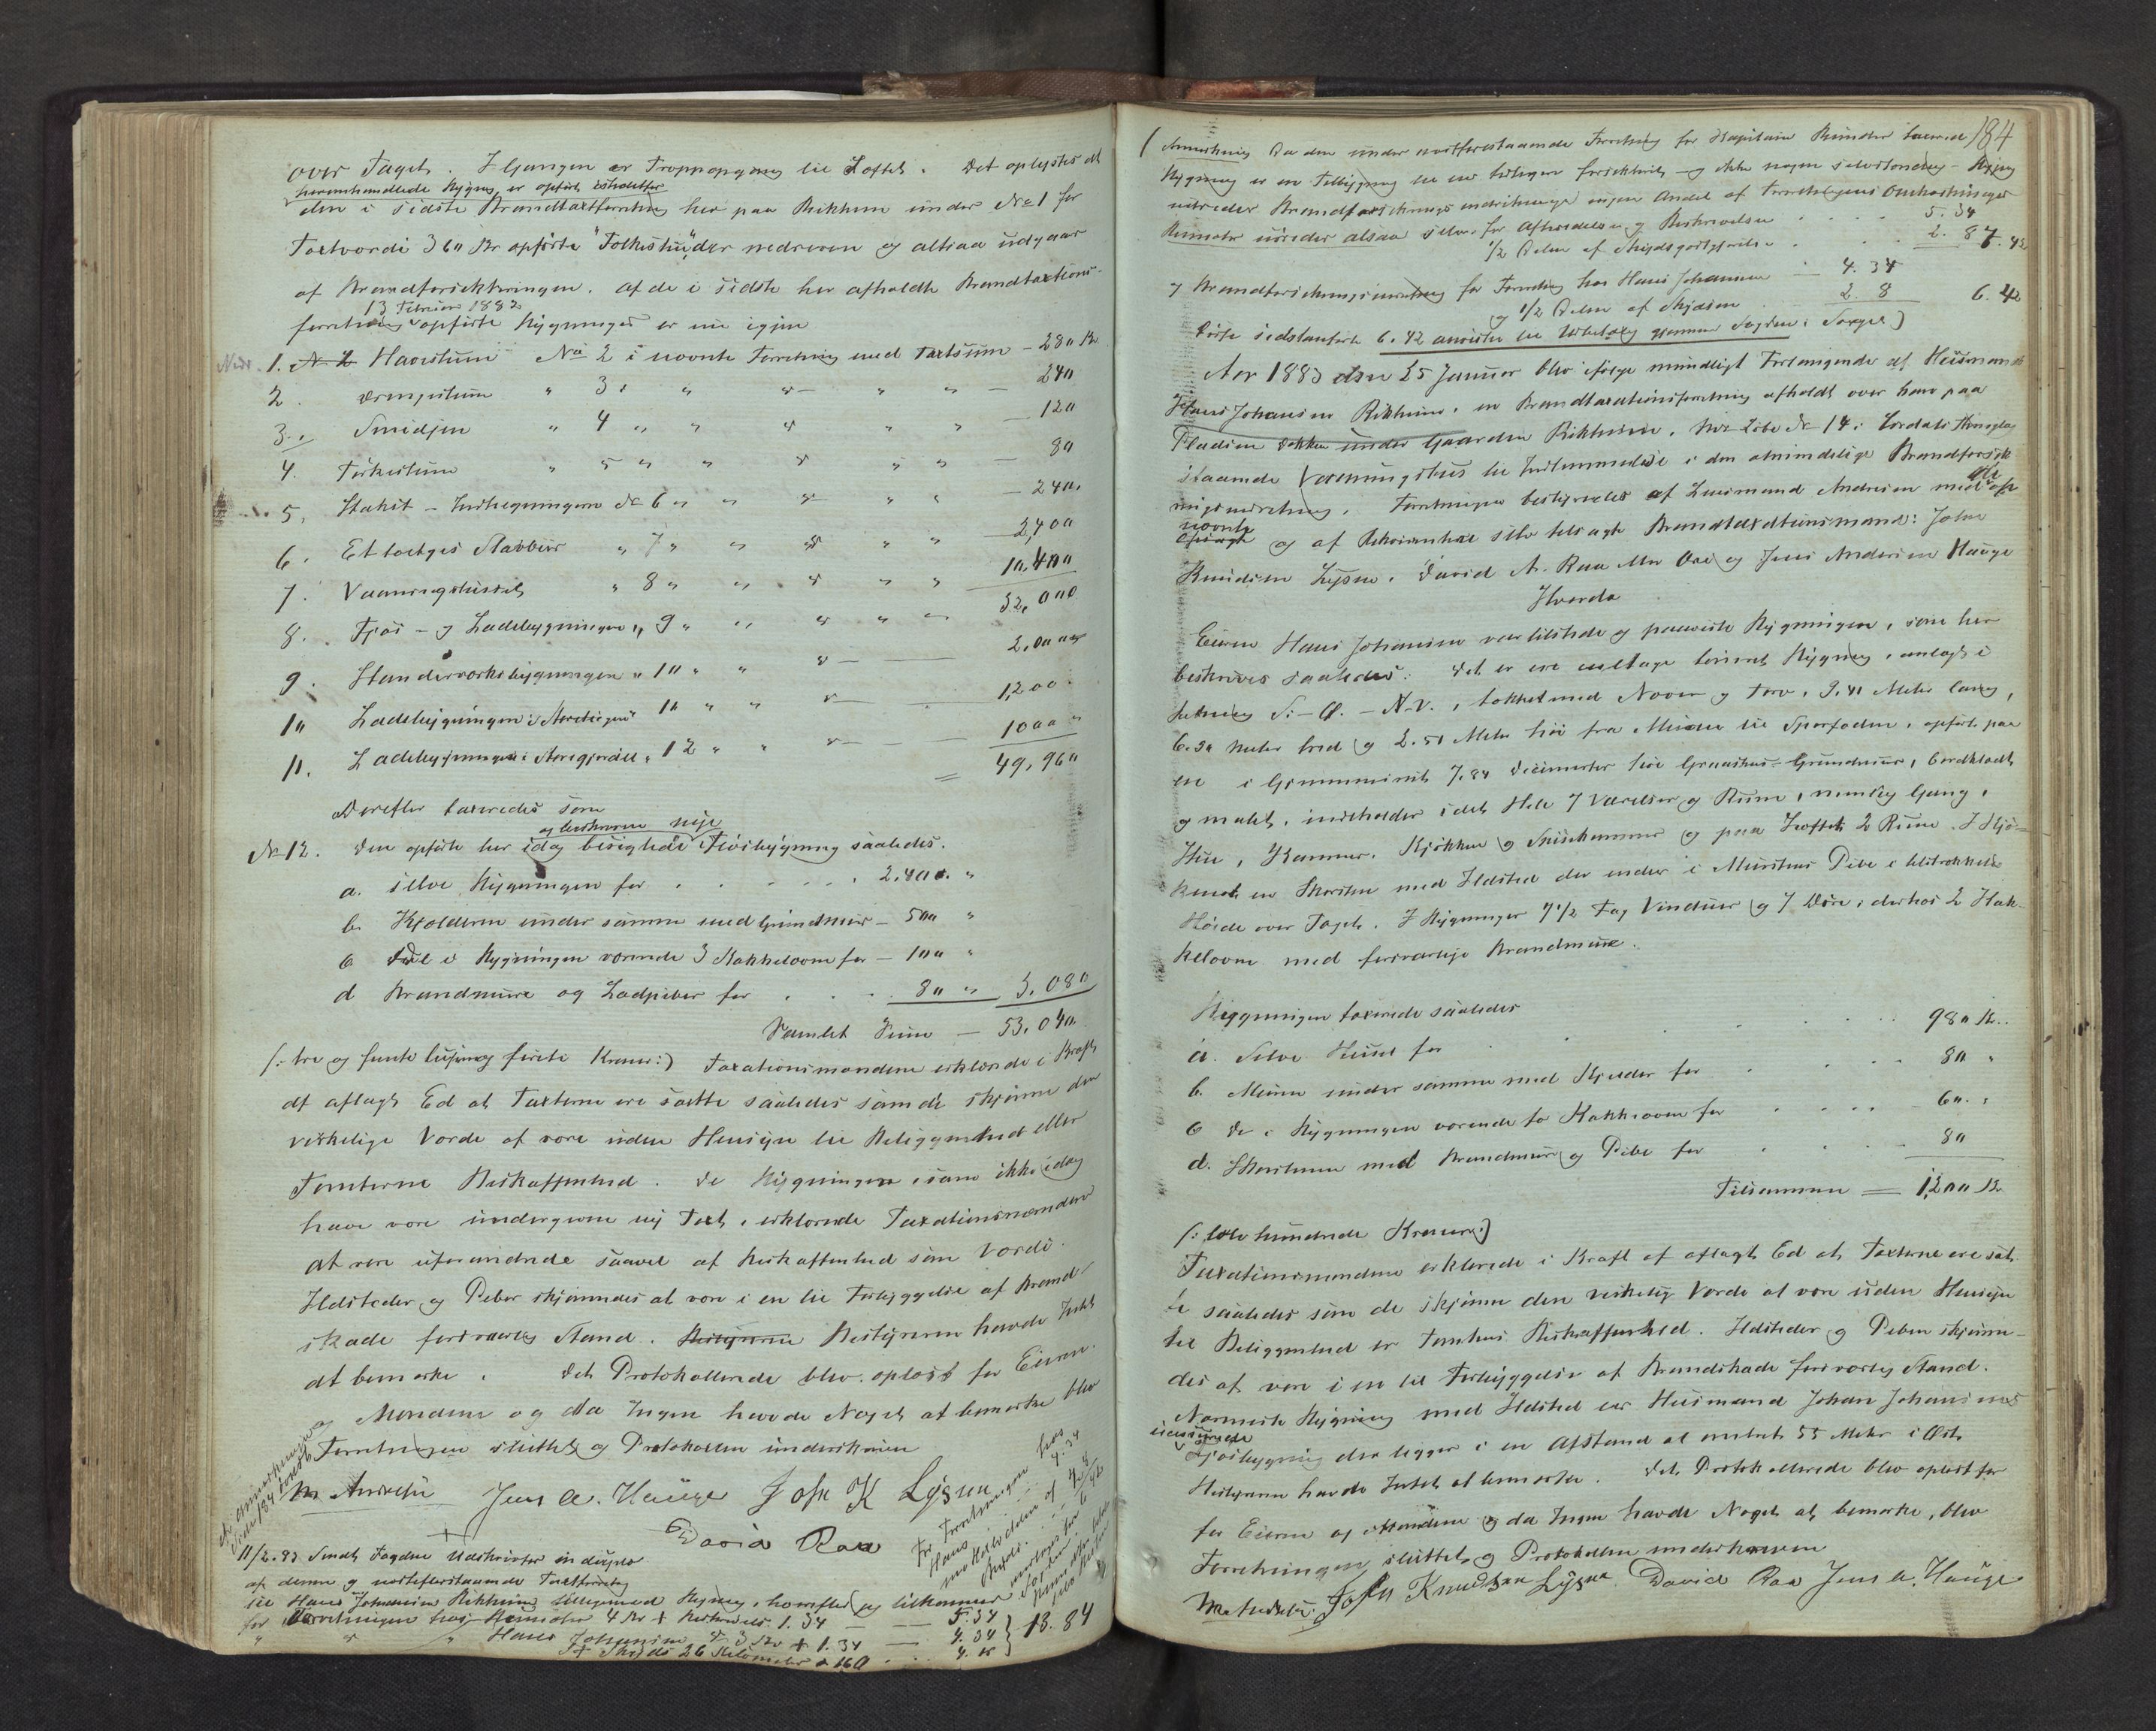 over Taget. I Gangen er Troppopgang til Loftet. Det oplystes at
heromhandlede Bygning er opført istedetfor
den i sidste Brandtaxtforretning her paa Rikheim under No 1 for
Taxtværdi 360 Kr opførte "Folkestue" der nedreven og altsaa udgaar
af Brandforsikringen. Af de i sidste her afholdte Brandtaxtions-
13 Februar 1882
forretning opførte Bygninger er nu igjen
1. Havrstuen No 2 i nævnte Forretning med Taxtsum - 280 Kr
2. Drengestuen " 3 " " " " - 240
3. Smidjen " 4 " " " " - 120
4. Tørkestuen " 5 " " " " - 80
5. Stakit-Indhegningen No 6 " " " " - 240.
6. Et toetages Stabbur " 7 " " " " 2,400
7. Vaaningshuset " 8 " " " " 10.400
8. Fjøs- og Ladebygningen " 9 " " " " 32,000
9. Standerværksbygningen " 10 " " " 2,000
10 Ladebygningen i " 11 " " " 1,200
11. Ladebygningen i Storegjærdet " 12 " " " 1000 "
= 49,960
Derefter taxeredes som
og beskrevne nye
No 12. den opførte her idag besigtede Fløibygning saaledes.
a. selve Bygningen for . . . . 2.400. "
b. Kjælderen under samme med Grundmur - 500 "
c De i Bygningen værende 3 Kakkelovne for - 100 "
d Brandmure og Ladpiber for . . . 80 " 3.080
Samlet Sum - 53.040
(: tre og femti tusinde firti Kroner :) Taxationsmændene erklærede i Kraft
af aflagt Ed at Taxterne ere satte saaledes som de skjønne den
virkelige Værde at være uden Hensyn til Beliggenhed eller
Tomterne Beskaffenhed. De Bygninger, som ikke idag
have være undergivne ny Taxt, erklærede Taxationsmændene
at være uforandrede saavel af Beskaffenhed som Værdi.
Ildsteder og Piber skjønnedes at være i en til Forebyggelse af Brand-
skade forsvarlig Stand. Bestyreren Bestyreren havde Intet
at bemærke. Det Protokollerede blev oplæst for Eieren
og Mændene og da Ingen havde Noget at bemærke blev
Forretningen sluttet og Protokollen underskreven
M Andresen Jens A. Hauge John K Lysne
David Raa
11/2.83 Sendt Fogden Udskrifter in duplo
af denne og næstefterstaaende Taxtforretning
for Forretningen hos 4 Kr + Beskrivels. 1.34 - 5.34
" " " Hans Johannesen 3 Kr + 1.34 - 4.34
Skyds 26 Kilometer a 16 Ø . . 4.16 } 13.84
184
(Anmærkning Da den under næstforestaaende Forretning for Kapitain taxerede
Bygning er en Tilbygning til en tidligere forsikret og ikke nogen selvstændig Bygning
udreder Brandforsikringsindretningen ingen Andel af Forretningens Omkostninger
udreder altsaa selv for Afholdelsen og Beskrivelsen . . . 5.34
1/2 Delen af Skydsgodtgjørelsen . . . 2.8 7.42
og Brandforsikringsindretning for Forretning hos Hans Johannesen - 4.34
og 1/2 Delen af Skydsen 2.8 6.42
Disse sidstanførte 6.42 anvistes til Udbetaling gjennem Fogden i Sogn)
Aar 1883 den 25 Januar blev ifølge mundligt Forlangende af Husmand
Hans Johannesen Rikheim, en Brandtaxationsforretning afholdt over hans paa
Pladsen under Gaarden Rikheim, Mx Løbe No 14 i Lærdals Thinglag
staaende Vaaningshus til Indlemmelse i den almindelige Brandforsik-
ringsindretning. Forretningen bestyredes af Lensmand Andresen med ofte
nævnte
og af Rekvirenten selv tilsagte Brandtaxationsmænd: John
Knudsen Lysne, David A. Raa og Jens Andersen Hauge
Hvorda
Eieren Hans Johannesen var tilstede og paaviste Bygningen, som her
beskrives saaledes: Det er en enetage tømret Bygning, anlagt i
Retning S.-Ø. - N.V., tækket med Næver og Torv, 9.41 Meter lang,
6.30 Meter bred og 2.51 Meter høi fra Muren til Sperfoden, opført paa
en i Gjennemsnit 7.84 Decimeter høi Graastens-Grundmur, bordklædt
og malet, indeholder i det Hele 7 Værelser og Rum, nemlig Gang,
Stue, Kammer, Kjøkken og Spisekammer og paa Loftet 2 Rum. I Kjø-
kenet en Skorsten med Ildsted der ender i Murstens Pibe i tilstrækkelig
Høide over Taget. I Bygningen 7 1/2 Fag Vinduer og 7 Døre, derhos 2 Kak-
kelovne med forsvarlige Brandmure.
Bygningen taxerede saaledes
a. Selve Huset for . . . 980 Kr.
b. Muren under samme med Kjelder for . . . 80 "
c De i Bygningen værende to Kakkelovne for . . . 60. "
d. Skorstenen med Brandmure og Pibe for . . . 80
Tilsammen = 1,200 Kr
(: tolv hundrede Kroner :)
Taxationsmændene erklærede i Kraft af aflagt Ed at Taxterne ere sat-
te saaledes som de skjønne den virkelig Værde at være uden Hensyn
til Beliggenhed er Tomtens Beskaffenhed. Ildsteder og Piben skjønne-
des at være i en til Forebyggelse af Brandskade forsvarlig Stand.
Nærmeste Bygning med Ildsted er Husmand Johan Johannesens
bygning der ligger i en Afstand af omtrent 55 Meter i Øst.
Bestyreren havde Intet at bemærke. Det Protokollerede blev oplæst for
for Eieren og Mændene og da Ingen havde Noget at bemærke, blev
Forretningen sluttet og Protokollen underskreven
M Andresen. John Knudsen Lysne David Raa Jens A. Hauge